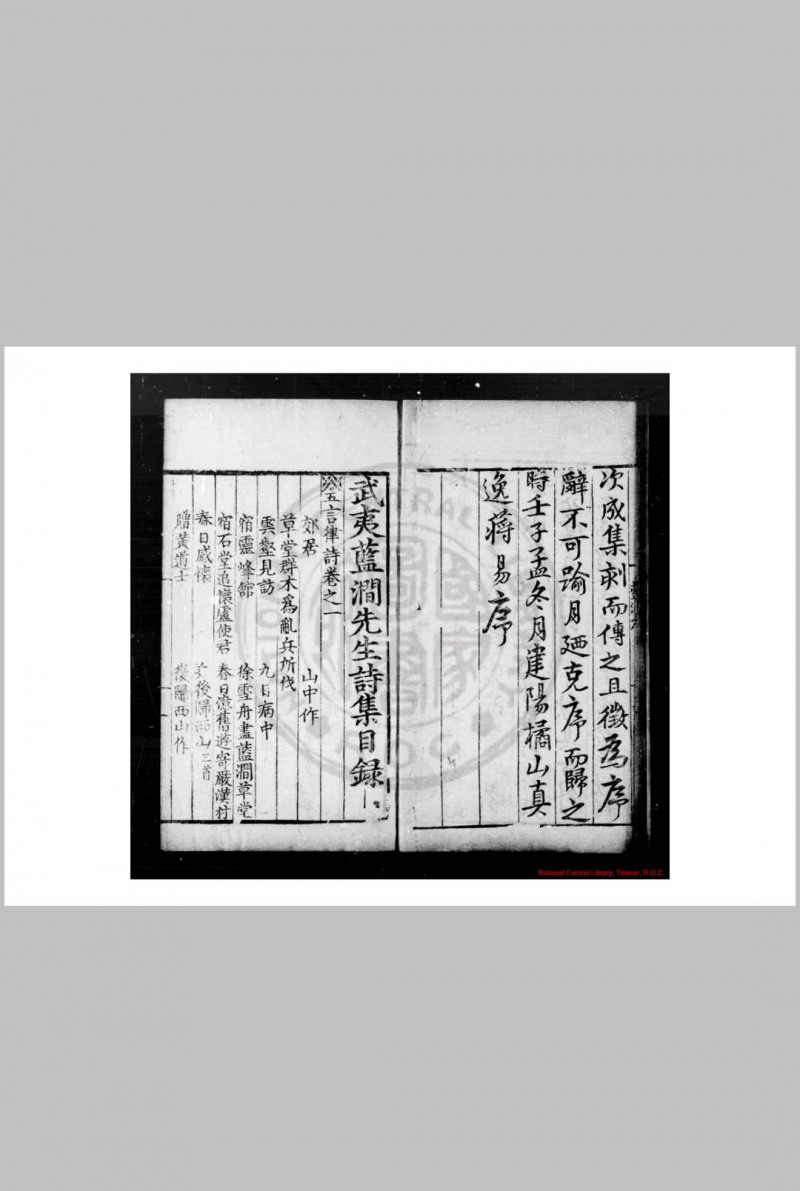 次成集刻而傳之且徵為序
辭不可踰月廼克序而歸之
時壬子孟冬月建陽橘山真
逸蔣易序
武夷藍澗先生詩集目録
五言律詩卷之一
郊居 山中作
草堂群木為亂兵所伐
雲壑見訪 九日病中
宿靈峰舘 徐雪舟畫藍澗草堂
宿石堂追懷盧使君 春日憶舊遊寄嚴漢村
春日感懷 後歸西山三首
贈黃道士 復歸西山作
National Central Library, Taiwan, R.O.C.